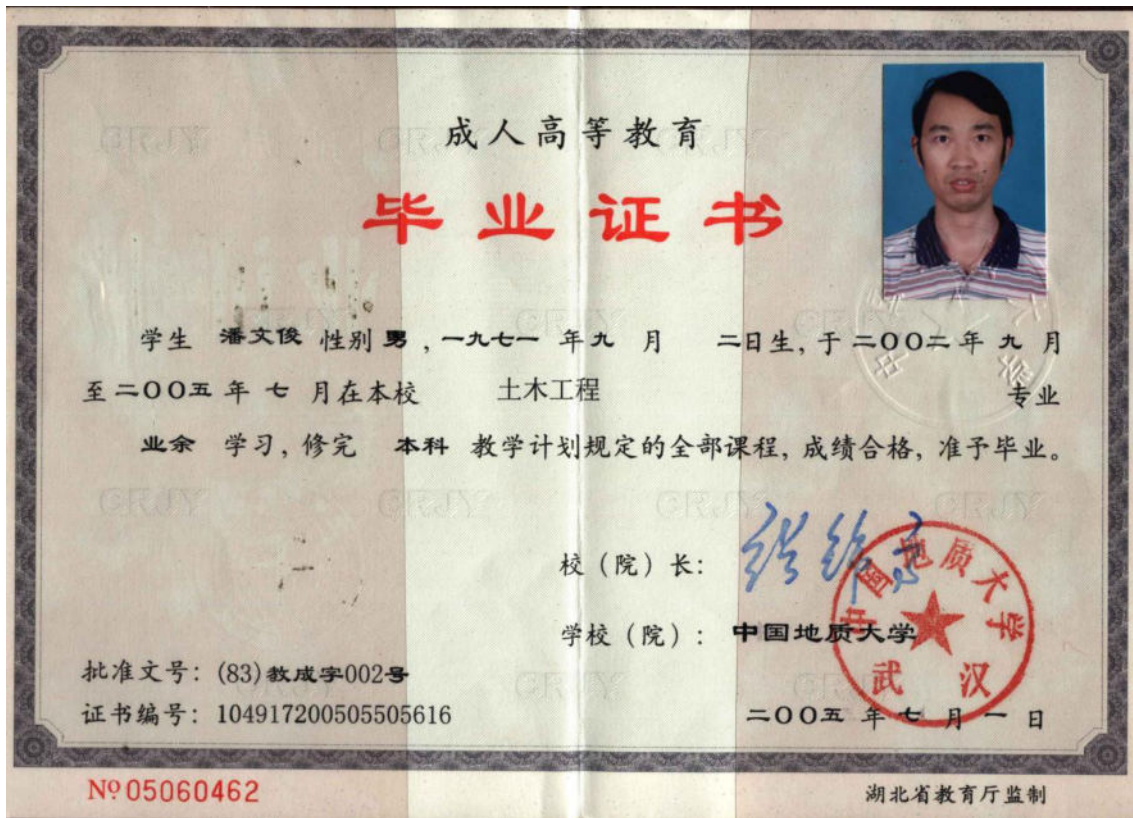 成人高等教育
毕业证书
学生 潘文俊 性别 男，一九七一 年 九 月 二日生，于 二〇〇二 年 九 月
至 二〇〇五 年 七 月在本校 土木工程 专业
业余 学习，修完 本科 教学计划规定的全部课程，成绩合格，准予毕业。
校（院）长：
学校（院）：中国地质大学
中国地质大学
武汉
批准文号：(83)教成字002号
证书编号：104917200505505616
二〇〇五 年 七 月 一 日
№ 05060462
湖北省教育厅监制
CRJY
CRJY
CRJY
CRJY
CRJY
CRJY
CRJY
CRJY
CRJY
CRJY